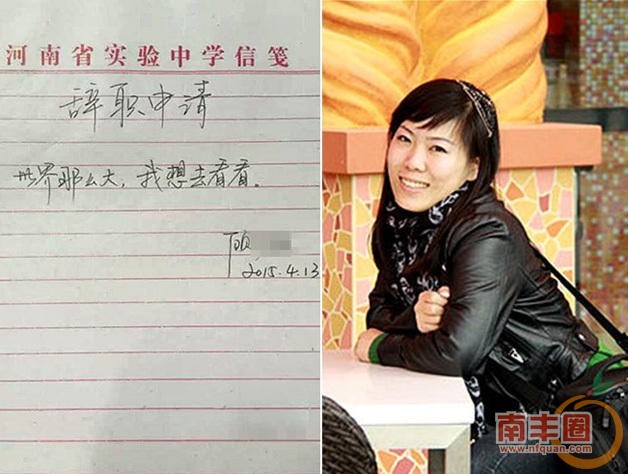 河南省实验中学信笺
辞职申请
世界那么大，我想去看看。
顾
2015.4.13
南丰圈
www.nfquan.com